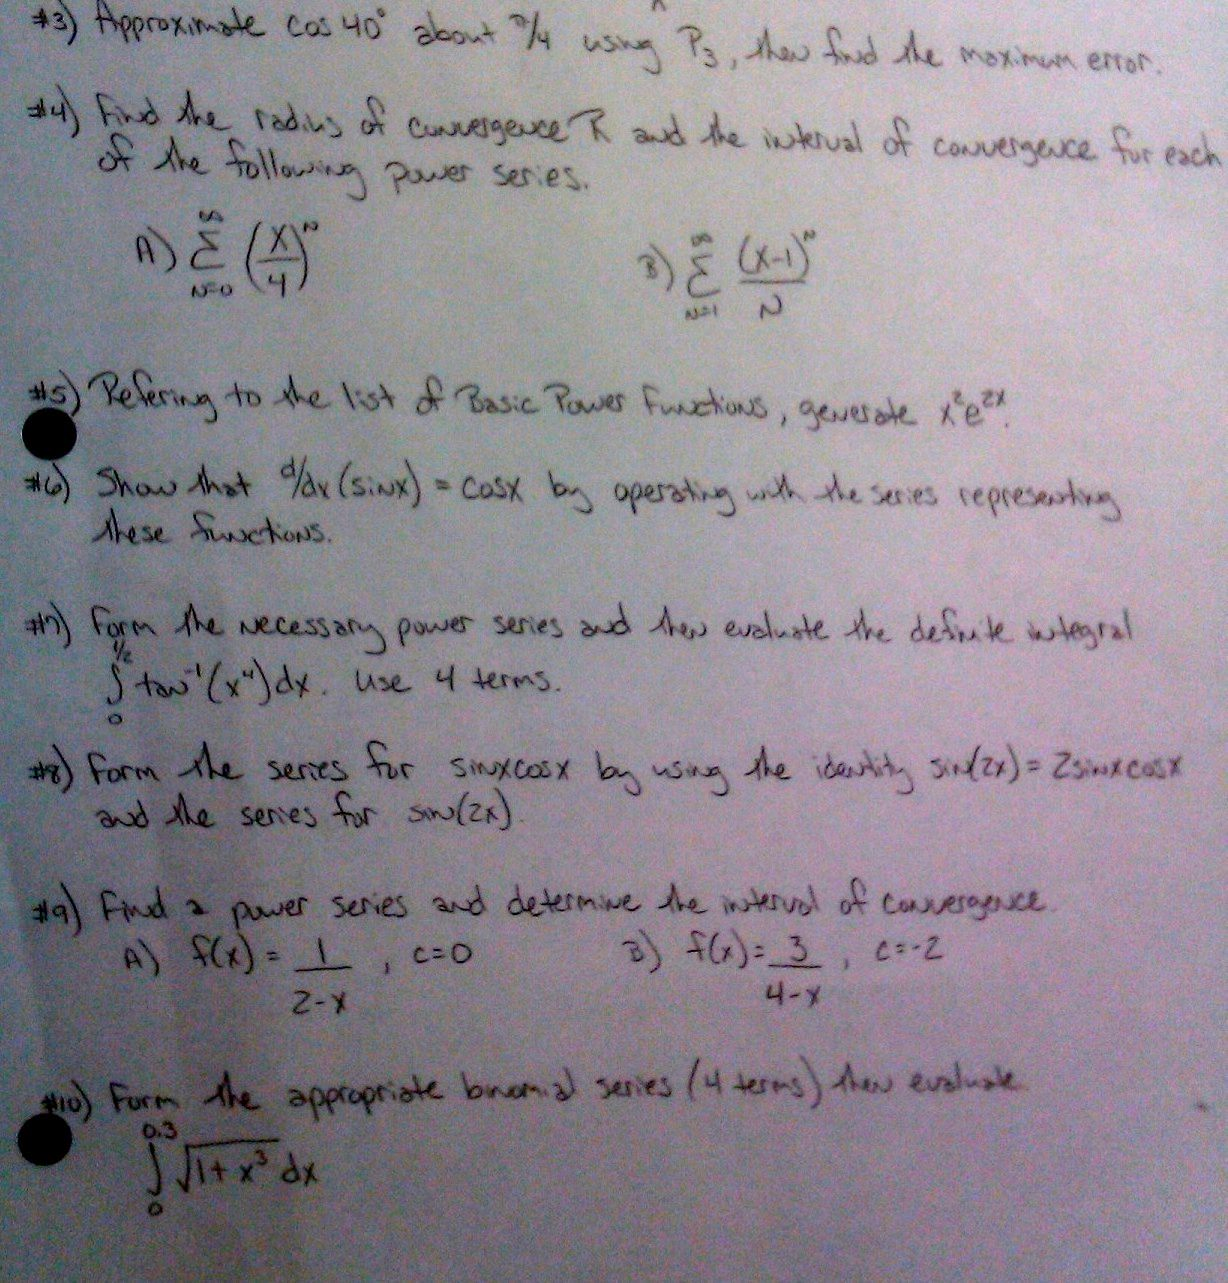 #3) Approximate cos 40° about π/4 using P₃, then find the maximum error.
#4) Find the radius of convergence R and the interval of convergence for each
of the following power series.
A) ∞ Σ N=0 (x/4)ᴺ B) ∞ Σ N=1 (x-1)ᴺ/N
#5) Refering to the list of Basic Power Functions, generate x²e²ˣ.
#6) Show that d/dx (sinx) = cosx by operating with the series representing
these functions.
#7) Form the necessary power series and then evaluate the definite integral
∫₀^½ tan⁻¹(x⁴)dx. Use 4 terms.
#8) Form the series for sinxcosx by using the identity sin(2x) = 2sinxcosx
and the series for sin(2x).
#9) Find a power series and determine the interval of convergence.
A) f(x) = 1/2-x, c=0 B) f(x) = 3/4-x, c=-2
#10) Form the appropriate binomial series (4 terms) then evaluate
∫₀^0.3 √1+x³ dx